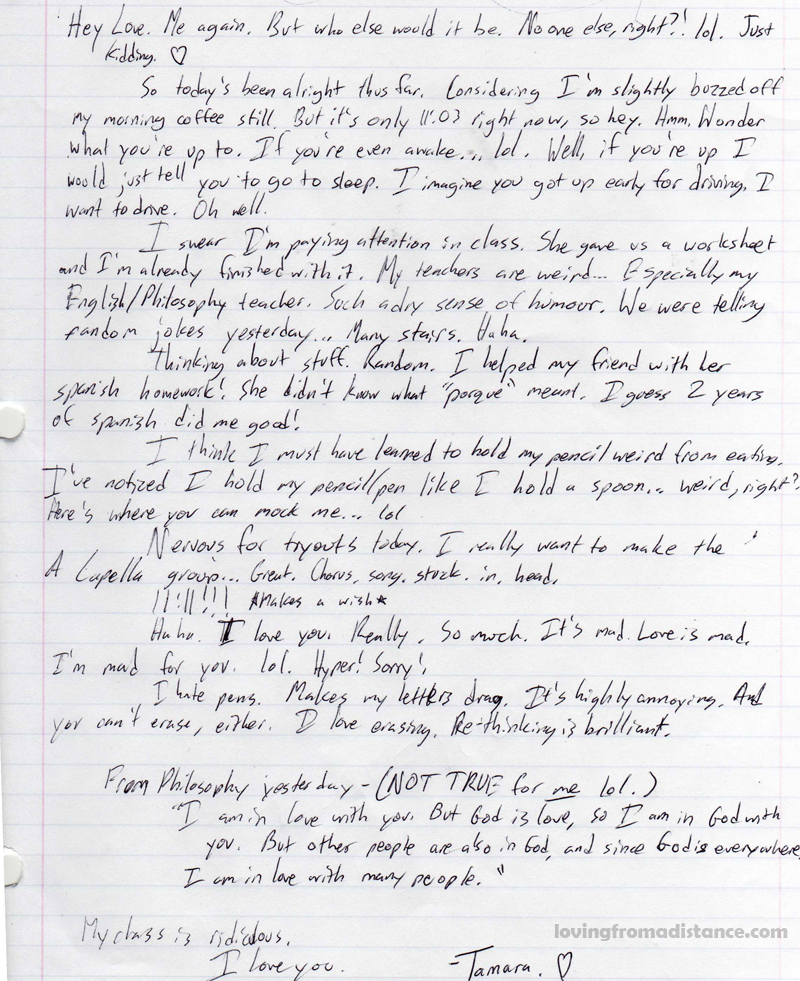 Hey Love. Me again. But who else would it be. No one else, right?! lol. Just
Kidding. ♡
So today's been alright thus far. Considering I'm slightly bozzed off
my morning coffee still. But it's only 11:03 right now, so hey. Hmm. Wonder
what you're up to. If you're even awake... lol. Well, if you're up I
would just tell you to go to sleep. I imagine you got up early for driving. I
want to drive. Oh well.
I swear I'm paying attention in class. She gave us a worksheet
and I'm already finished with it. My teachers are weird... Especially my
English/Philosophy teacher. Such a dry sense of humour. We were telling
random jokes yesterday... Many stairs. Haha.
Thinking about stuff. Random. I helped my friend with her
spanish homework! She didn't know what "porqué" meant. I guess 2 years
of spanish did me good!
I think I must have learned to hold my pencil weird from eating.
I've notized I hold my pencil/pen like I hold a spoon... weird, right?
Here's where you can mock me... lol
Nervous for tryouts today. I really want to make the
A Capella group... Great. Chorus. song. stuck. in. head.
11:11!!! *Makes a wish*
Haha. I love you. Really. So much. It's mad. Love is mad.
I'm mad for you. lol. Hyper! Sorry!
I hate pens. Makes my letters drag. It's highly annoying. And
you can't erase, either. I love erasing. Re-thinking is brilliant.
From Philosophy yesterday - (NOT TRUE for me lol.)
"I am in love with you. But God is love, so I am in God with
you. But other people are also in God, and since God is everywhere
I am in love with many people."
My class is ridiculous.
I love you.
-Tamara. ♡
lovingfromadistance.com